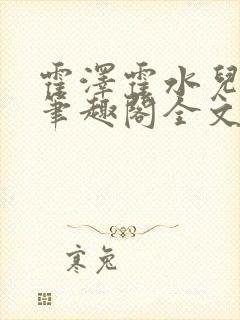 霍澤霍水兒
筆趣閣全文
寒兔